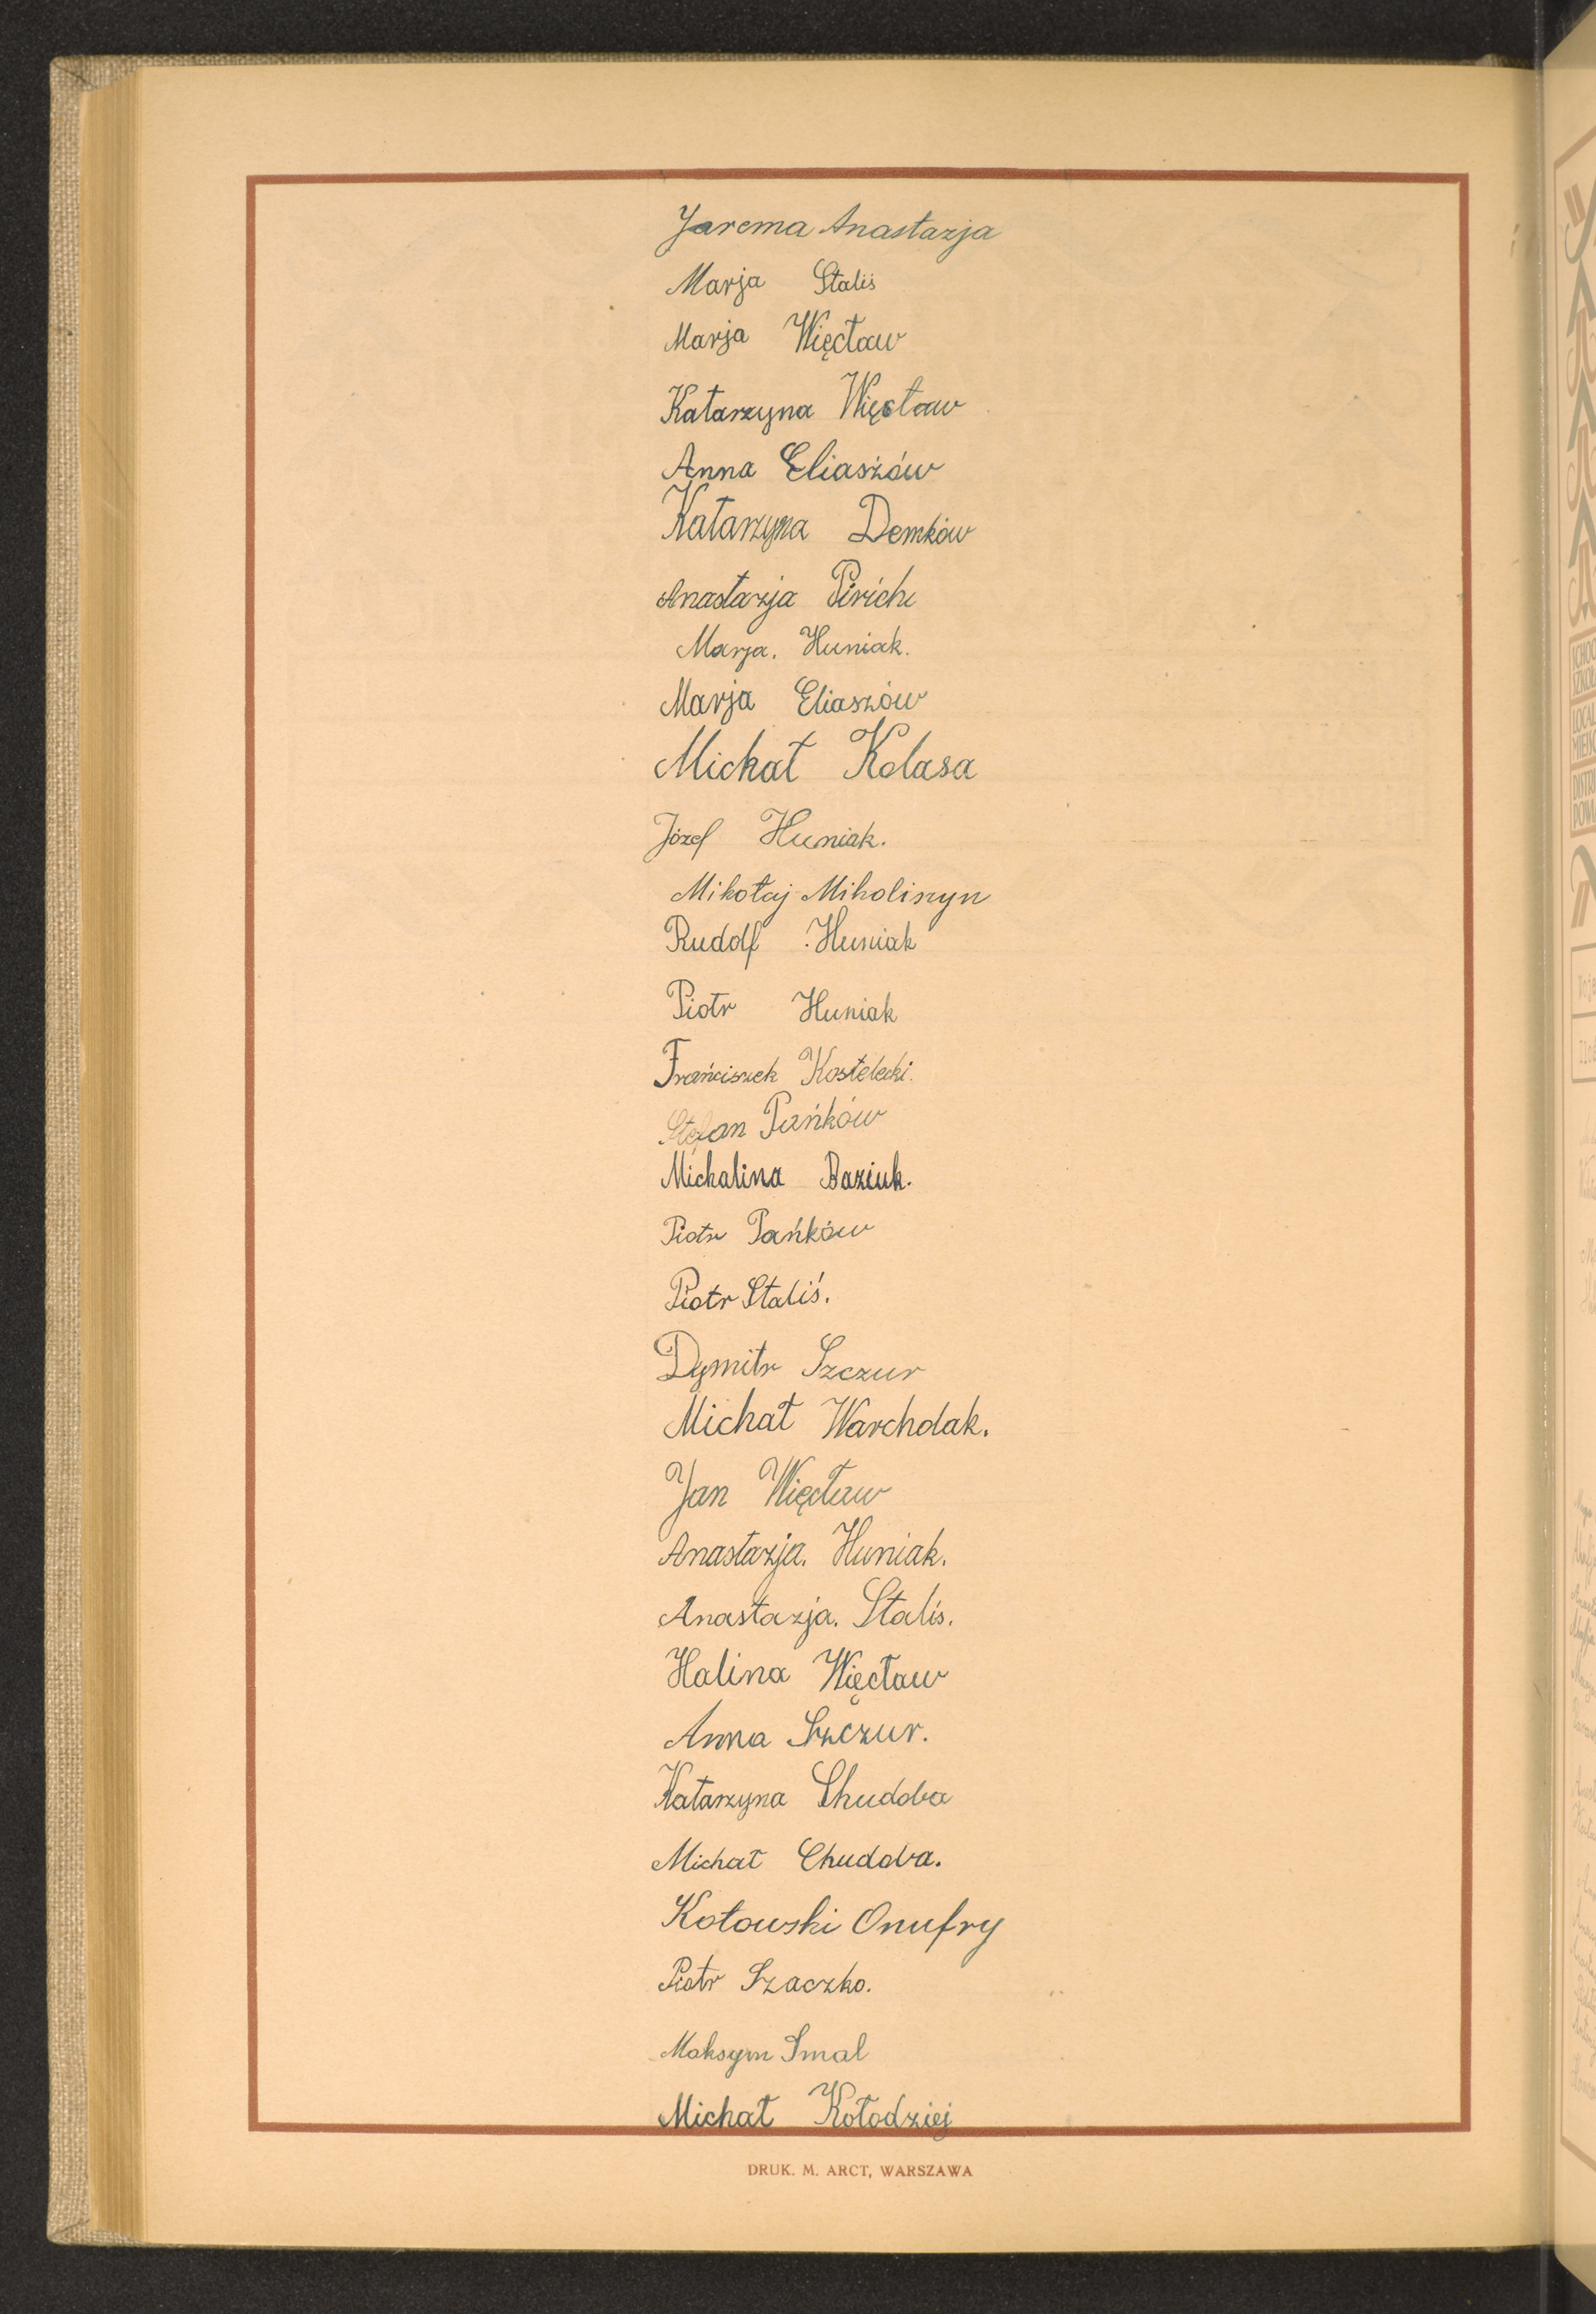 Jarema Anastazja
Marja Staliś
Marja Więcław
Katarzyna Więcław
Anna Eliaszów
Katarzyna Demków
Anastazja Pirich
Marja. Huniak.
Marja Eliaszów
Michał Kolasa
Józef Huniak.
Mikołaj Mikoliszyn
Rudolf Huniak
Piotr Huniak
Frańciszek Kostelecki.
Stefan Pańków
Michalina Baziuk.
Piotr Pańków
Piotr Staliś.
Dymitr Szczur
Michał Warcholak.
Jan Więcław
Anastazja. Huniak.
Anastazja. Staliś.
Halina Więcław
Anna Szczur.
Katarzyna Chudoba
Michał Chudoba.
Kotowski Onufry
Piotr Szaczko.
Maksym Smal
Michał Kołodziej
DRUK. M. ARCT, WARSZAWA